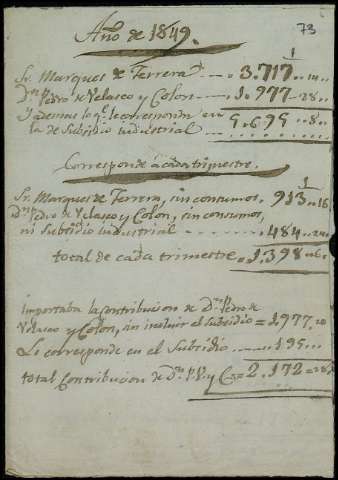 73
Año de 1849.
1
Sr. Marques de Ferrera .. 3.717..14..
Dn. Pedro de Velasco y Colon 1.977..28..
y ademas lo q. le corresponda en
la de Subsidio industrial 5.695...8..
Corresponde a cada trimestre.
1
Sr. Marques de Ferrera, sin consumos, 913..16
Dn. Pedro de Velasco y Colon, sin consumos,
ni Subsidio industrial 484..24
total de cada trimestre 1.398..6
importaba la contribucion de Dn. Pedro de
Velasco y Colon, sin incluir el subsidio = 1977.28
Le corresponde en el Subsidio 195...
total Contribucion de Dn. P. V. y C. = 2.172=28